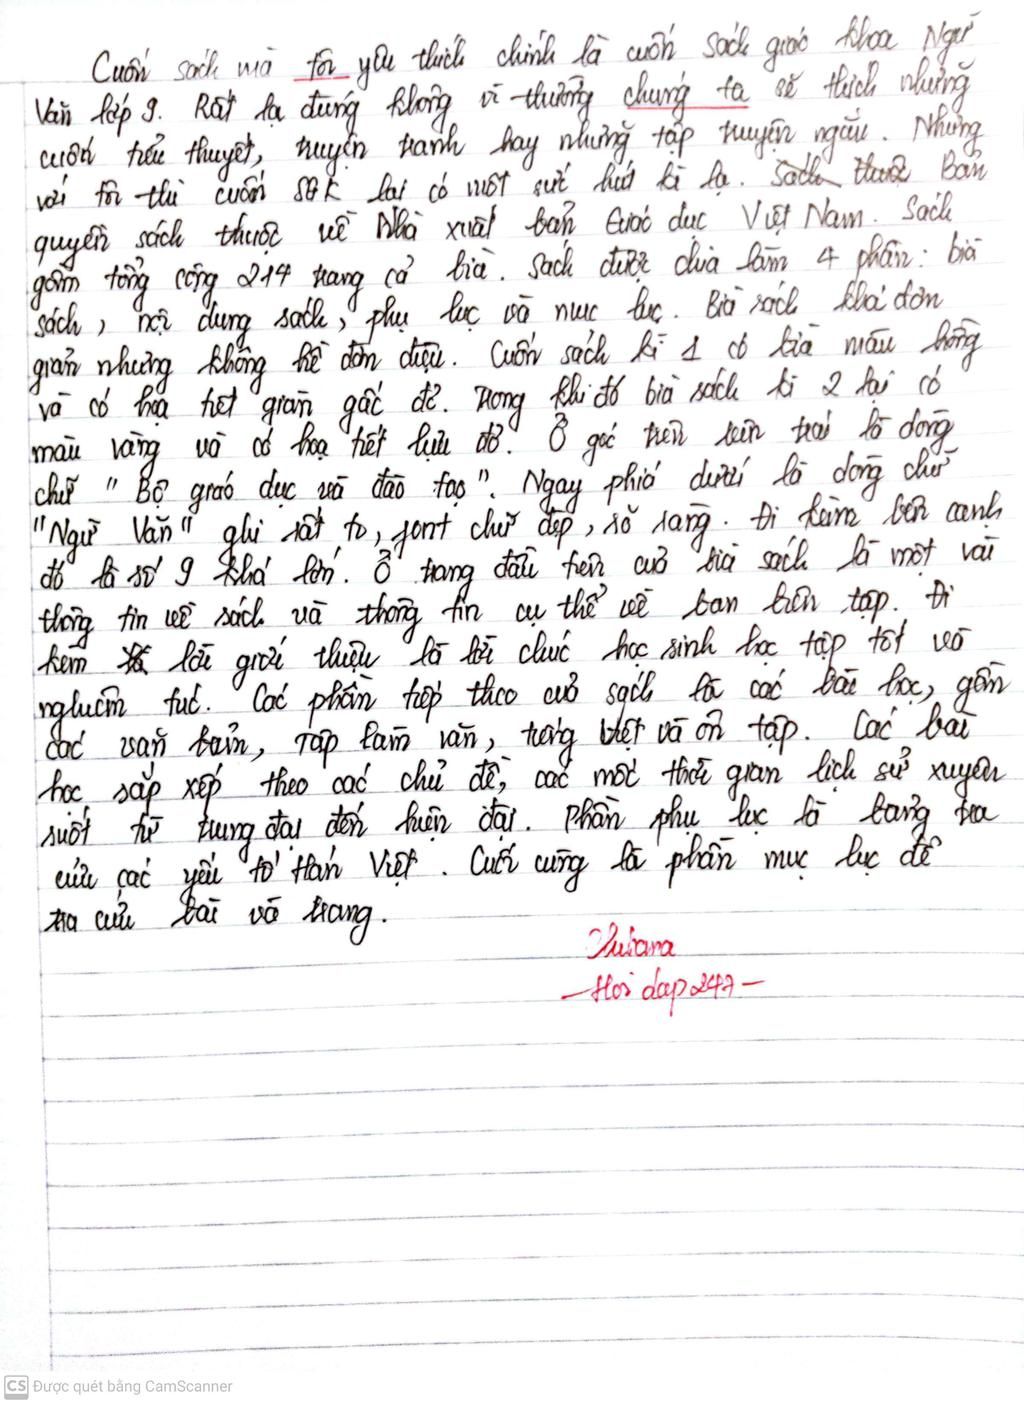 Cuốn sách mà tôi yêu thích chính là cuốn sách giáo khoa Ngữ
Văn lớp 9. Rất lạ đúng không vì thường chúng ta sẽ thích những
cuốn tiểu thuyết, truyện tranh hay những tập truyện ngắn. Nhưng
với tôi thì cuốn SGK lại có một sức hút kì lạ. Sách thuộc Bản
quyền sách thuộc về Nhà xuất bản Giáo dục Việt Nam. Sách
gồm tổng cộng 214 trang cả bìa. Sách được chia làm 4 phần: bìa
sách, nội dung sách, phụ lục và mục lục. Bìa sách khá đơn
giản nhưng không hề đơn điệu. Cuốn sách kì 1 có bìa màu hồng
và có hoạ tiết giàn gấc đỏ. Trong khi đó bìa sách kì 2 lại có
màu vàng và có hoạ tiết lựu đỏ. Ở góc trên bên trái là dòng
chữ " Bộ giáo dục và đào tạo". Ngay phía dưới là dòng chữ
"Ngữ Văn" ghi rất to, font chữ đẹp, rõ ràng. Đi kèm bên cạnh
đó là số 9 khá lớn. Ở trang đầu tiên của bìa sách là một vài
thông tin về sách và thông tin cụ thể về ban biên tập. Đi
kèm lời giới thiệu là lời chúc học sinh học tập tốt và
nghiêm túc. Các phần tiếp theo của sách là các bài học, gồm
các văn bản, Tập làm văn, tiếng Việt và ôn tập. Các bài
học sắp xếp theo các chủ đề, các mốc thời gian lịch sử xuyên
suốt từ trung đại đến hiện đại. Phần phụ lục là bảng tra
cứu các yếu tố Hán Việt. Cuối cùng là phần mục lục để
tra cứu bài và trang.
- Hoi dap 247 -
CS Được quét bằng CamScanner